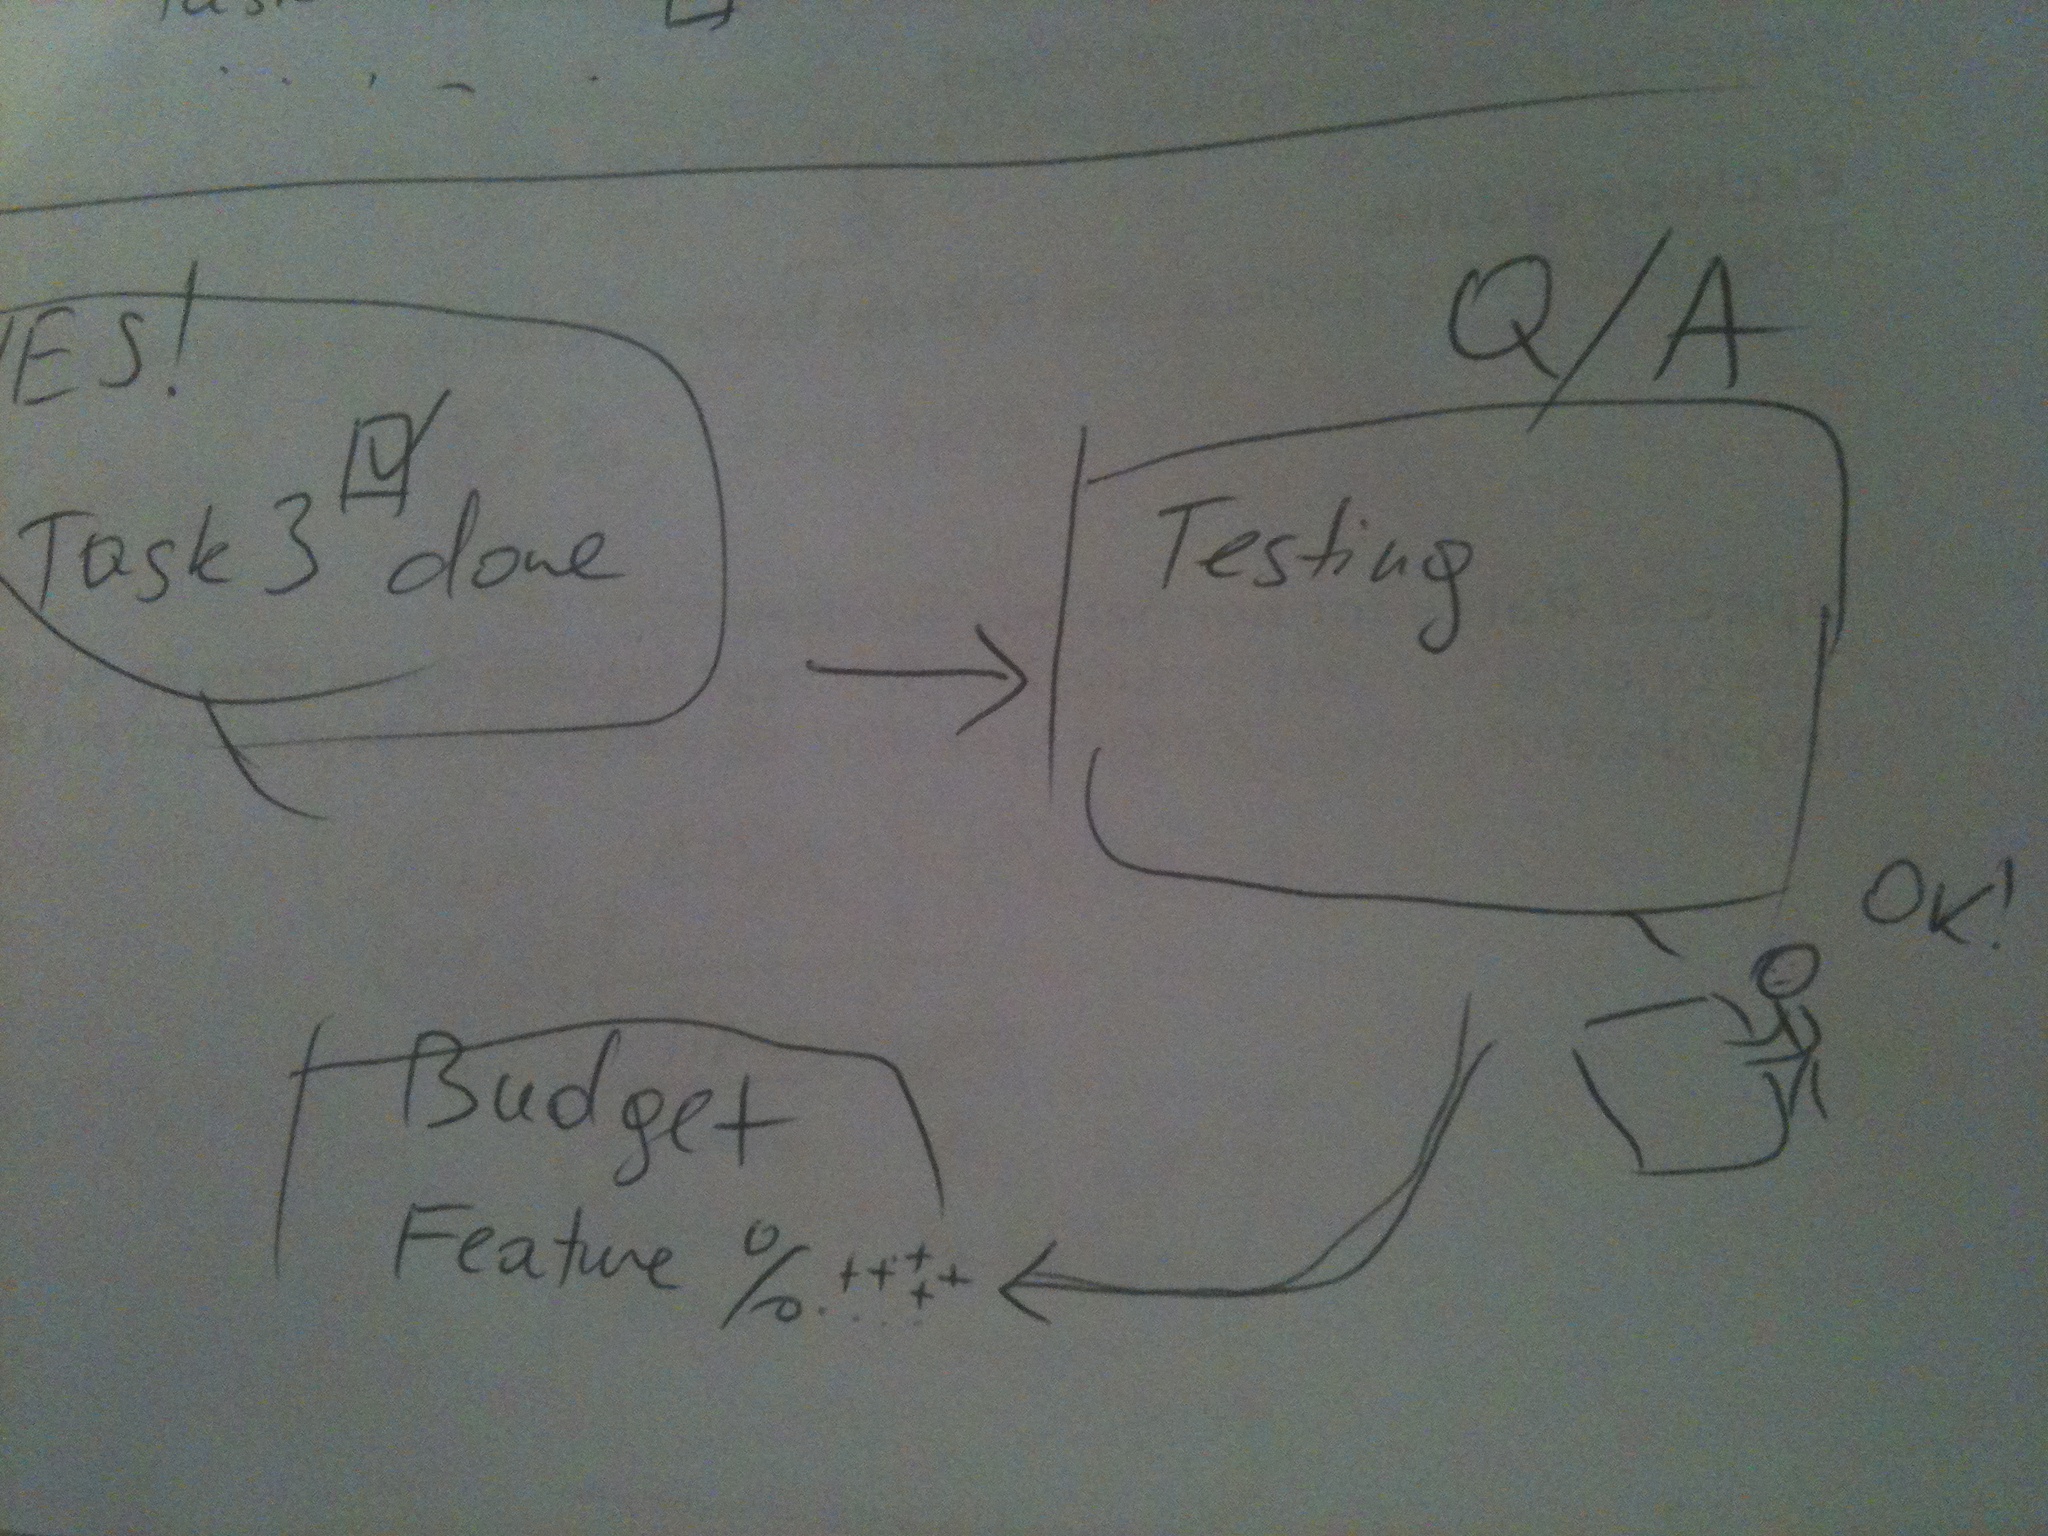 Task
YES!
Task 3 done
Q/A
Testing
OK!
Budget
Feature % +++++